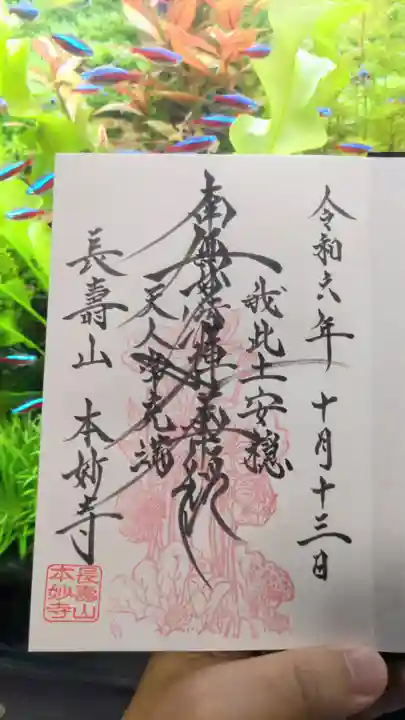 令和六年 十月十三日
我此土安穏
南無妙法蓮華経
天人常充満
長壽山 本妙寺
長壽山
本妙寺